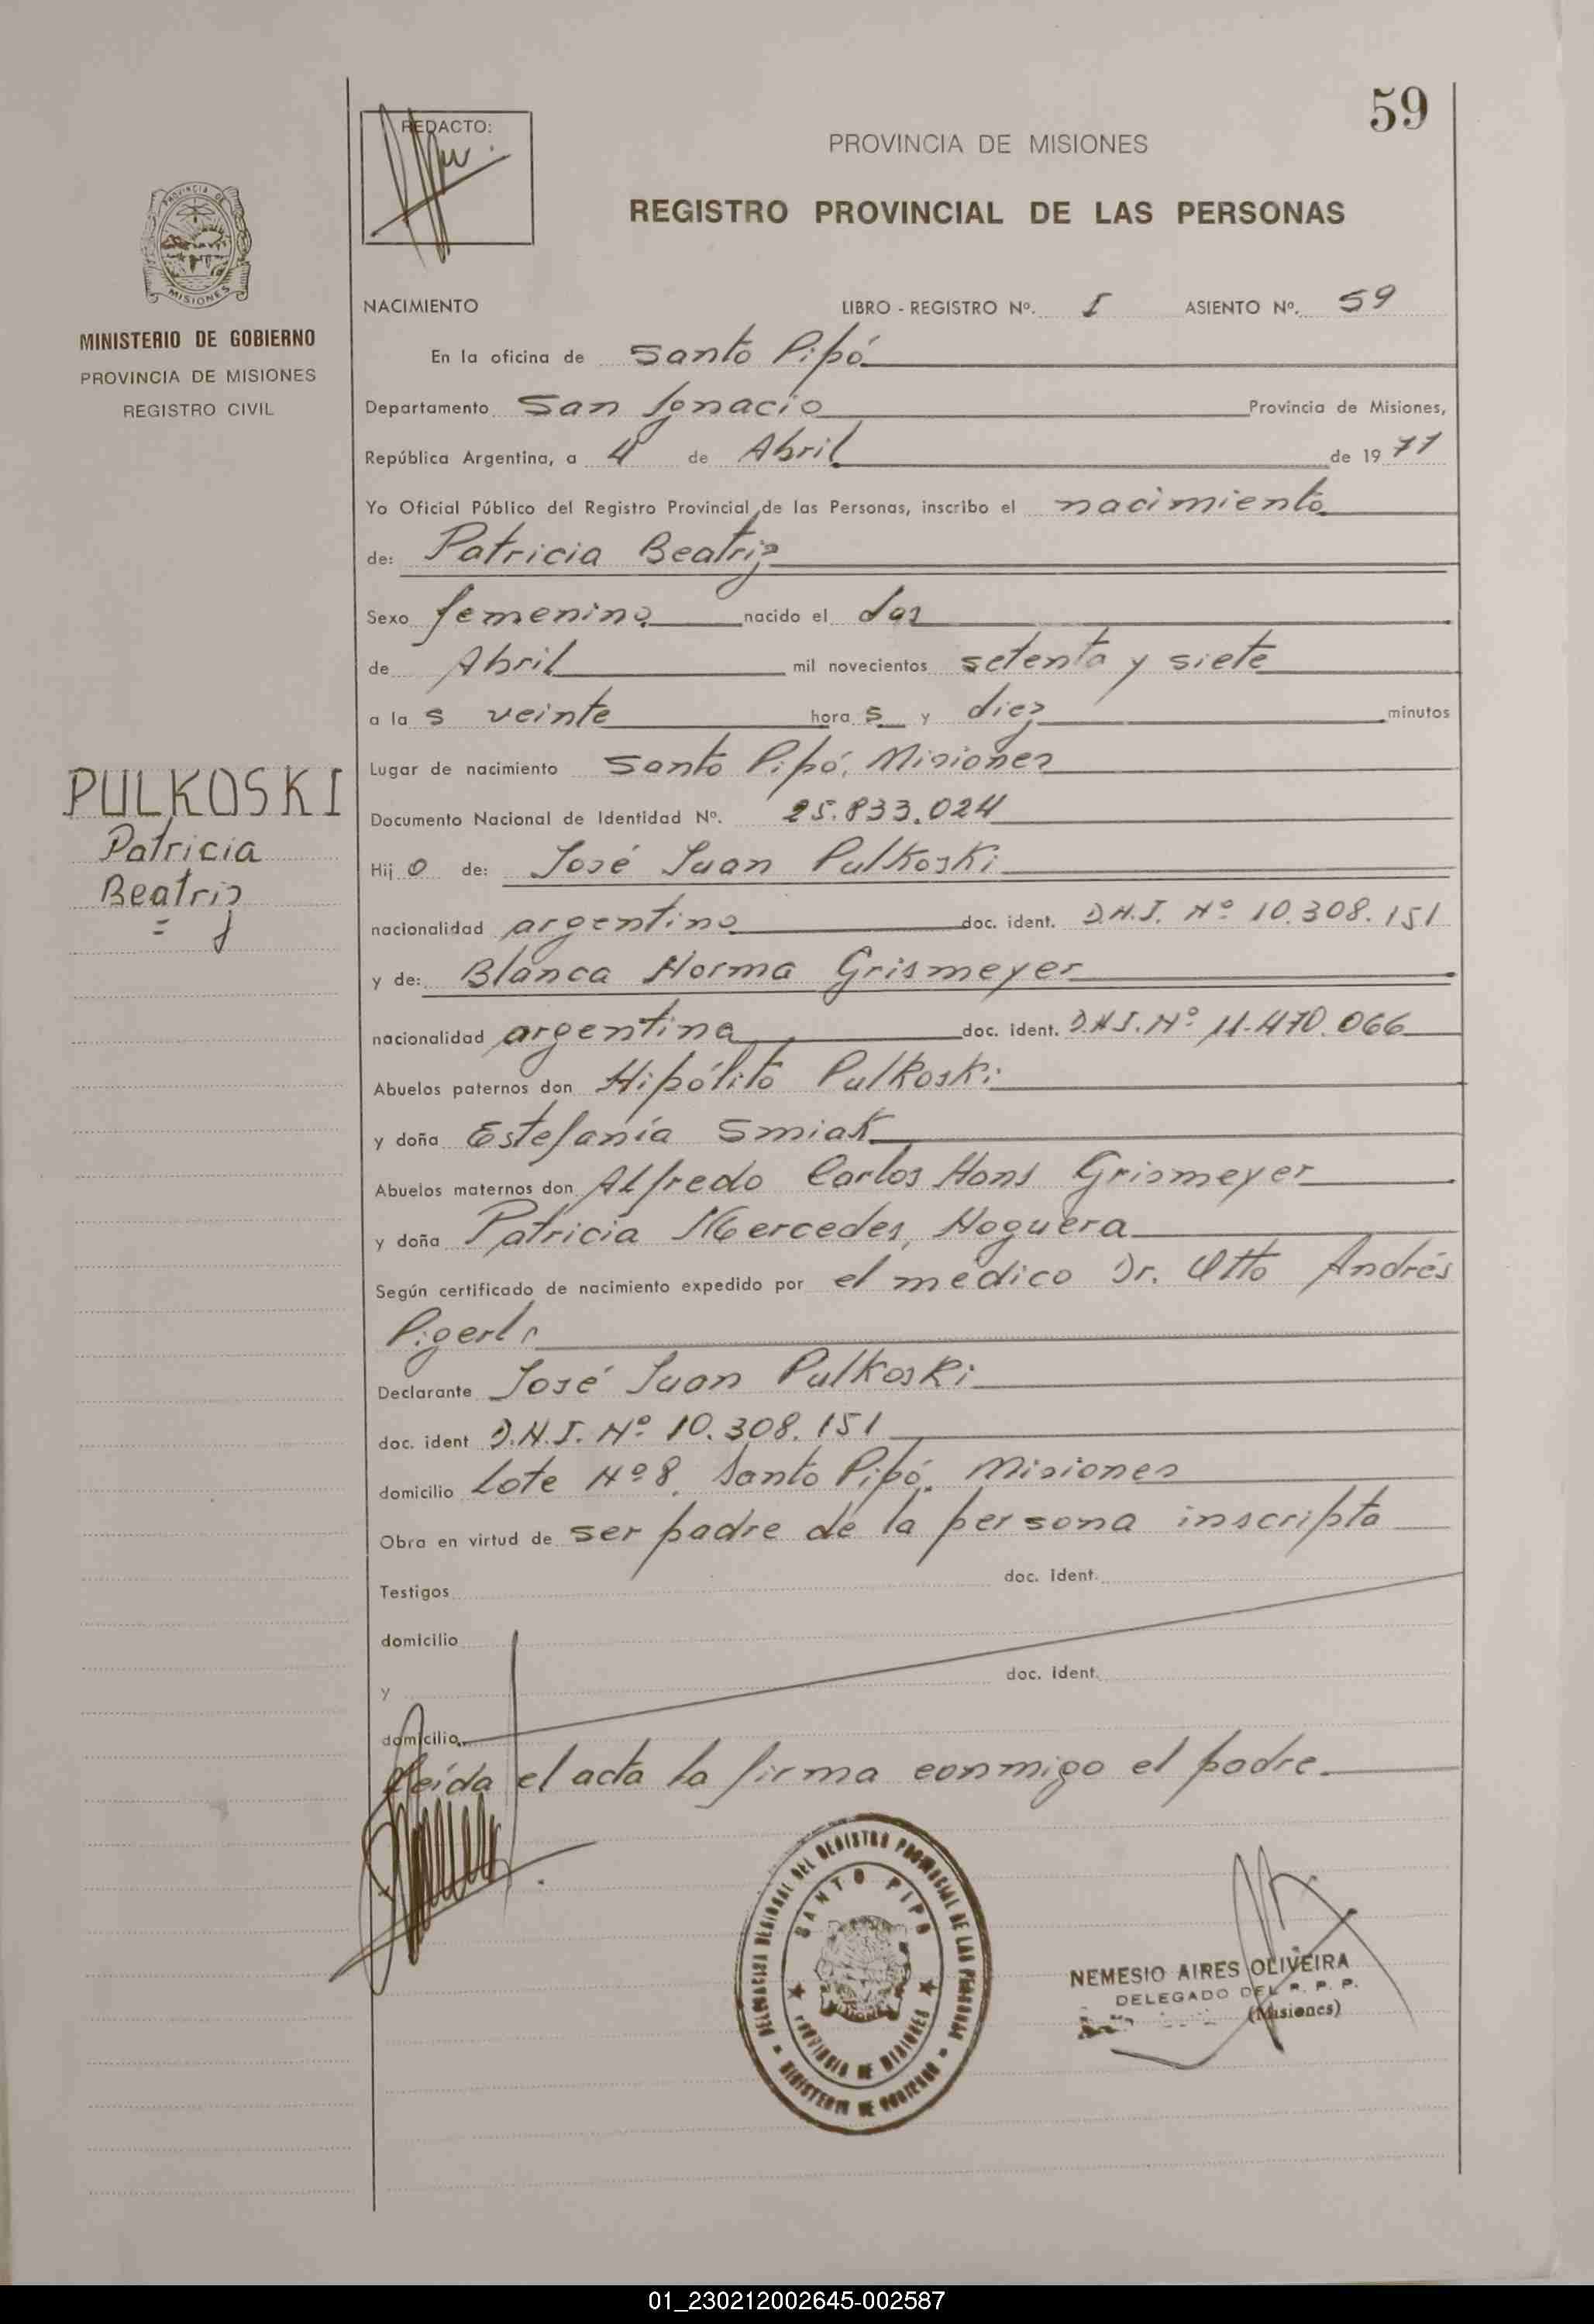 59
REDACTO:
PROVINCIA DE MISIONES
REGISTRO PROVINCIAL DE LAS PERSONAS
PROVINCIA DE
MISIONES
MINISTERIO DE GOBIERNO
PROVINCIA DE MISIONES
REGISTRO CIVIL
NACIMIENTO LIBRO - REGISTRO Nº. I ASIENTO Nº. 59
En la oficina de Santo Pipó
Departamento San Ignacio Provincia de Misiones,
República Argentina, a 4 de Abril de 1977
Yo Oficial Público del Registro Provincial de las Personas, inscribo el nacimiento
de: Patricia Beatriz
Sexo femenino nacido el dos
de Abril mil novecientos setenta y siete
a la s veinte hora s y diez minutos
Lugar de nacimiento Santo Pipó, Misiones
PULKOSKI
Patricia
Beatriz
Documento Nacional de Identidad Nº. 25.833.024
Hij o de: José Juan Pulkoski
nacionalidad argentino doc. ident. D.N.I. Nº 10.308.151
y de: Blanca Norma Grismeyer
nacionalidad argentina doc. ident. D.N.I. Nº 11.470.066
Abuelos paternos don Hipólito Pulkoski
y doña Estefanía Smiak
Abuelos maternos don Alfredo Carlos Hans Grismeyer
y doña Patricia Mercedes, Noguera
Según certificado de nacimiento expedido por el médico Dr. Otto Andrés
Declarante José Juan Pulkoski
doc. ident D.N.I. Nº 10.308.151
domicilio Lote Nº 8, Santo Pipó, Misiones
Obra en virtud de ser padre de la persona inscripta
Testigos doc. ident.
domicilio
y doc. ident.
domicilio
Leída el acta la firma conmigo el padre.
DELEGACION REGIONAL DEL REGISTRO PROVINCIAL DE LAS PERSONAS
SANTO PIPO
PROVINCIA DE MISIONES
MINISTERIO DE GOBIERNO
NEMESIO AIRES OLIVEIRA
DELEGADO DEL R. P. P.
(Misiones)
01_230212002645-002587